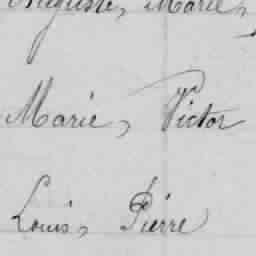 Auguste, Marie,
Marie, Victor
Louis, Pierre